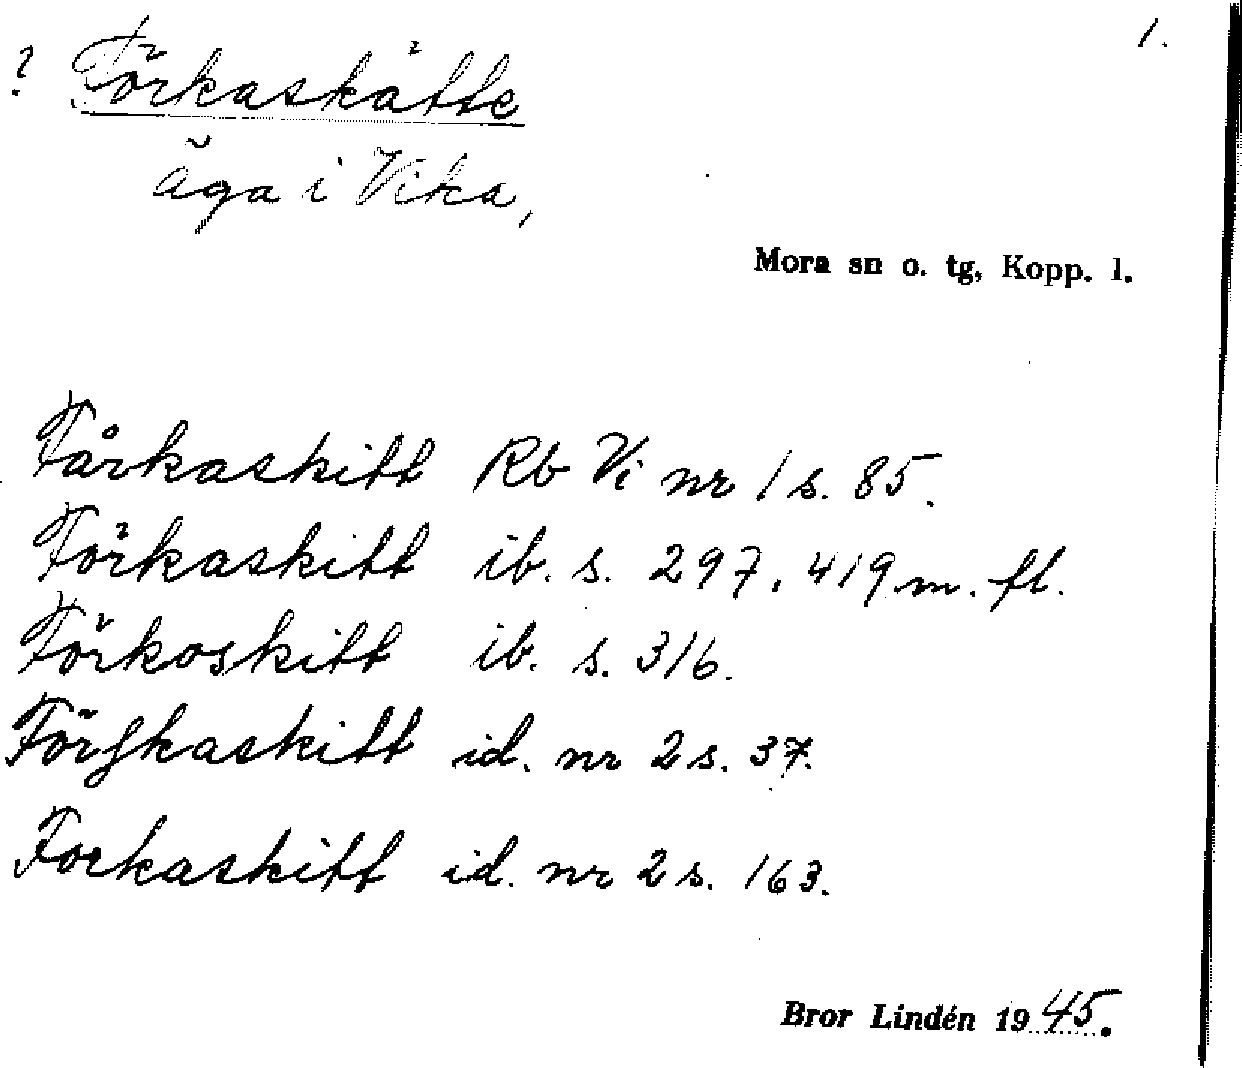 1.
? Förkaskätte
äga i Vika,
Mora sn o. tg, Kopp. l.
Fårkaskitt Rb Vi nr 1 s. 85.
Förkaskitt ib. s. 297, 419 m. fl.
Förkoskitt ib. s. 316.
Förfkaskitt id. nr 2 s. 37.
Forkaskitt id. nr 2 s. 163.
Bror Lindén 1945.